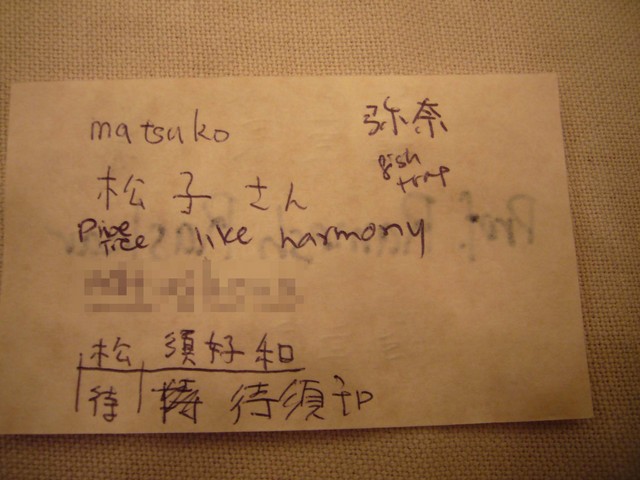 matsuko
弥奈
松子さん
fish trap
pine tree like harmony
松 須好和
待 待須印